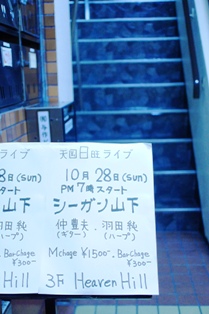 ライブ
8日(sun)
タート
山下
羽田 純
ハープ)
Bar Chage
¥300ー
Hill
天国日曜ライブ
10月28日(sun)
PM7時スタート
シーガン山下
仲 豊夫、羽田 純
(ギター) (ハープ)
Mchage ¥1500ー. Bar Chage
¥300ー
3F Heaven Hill